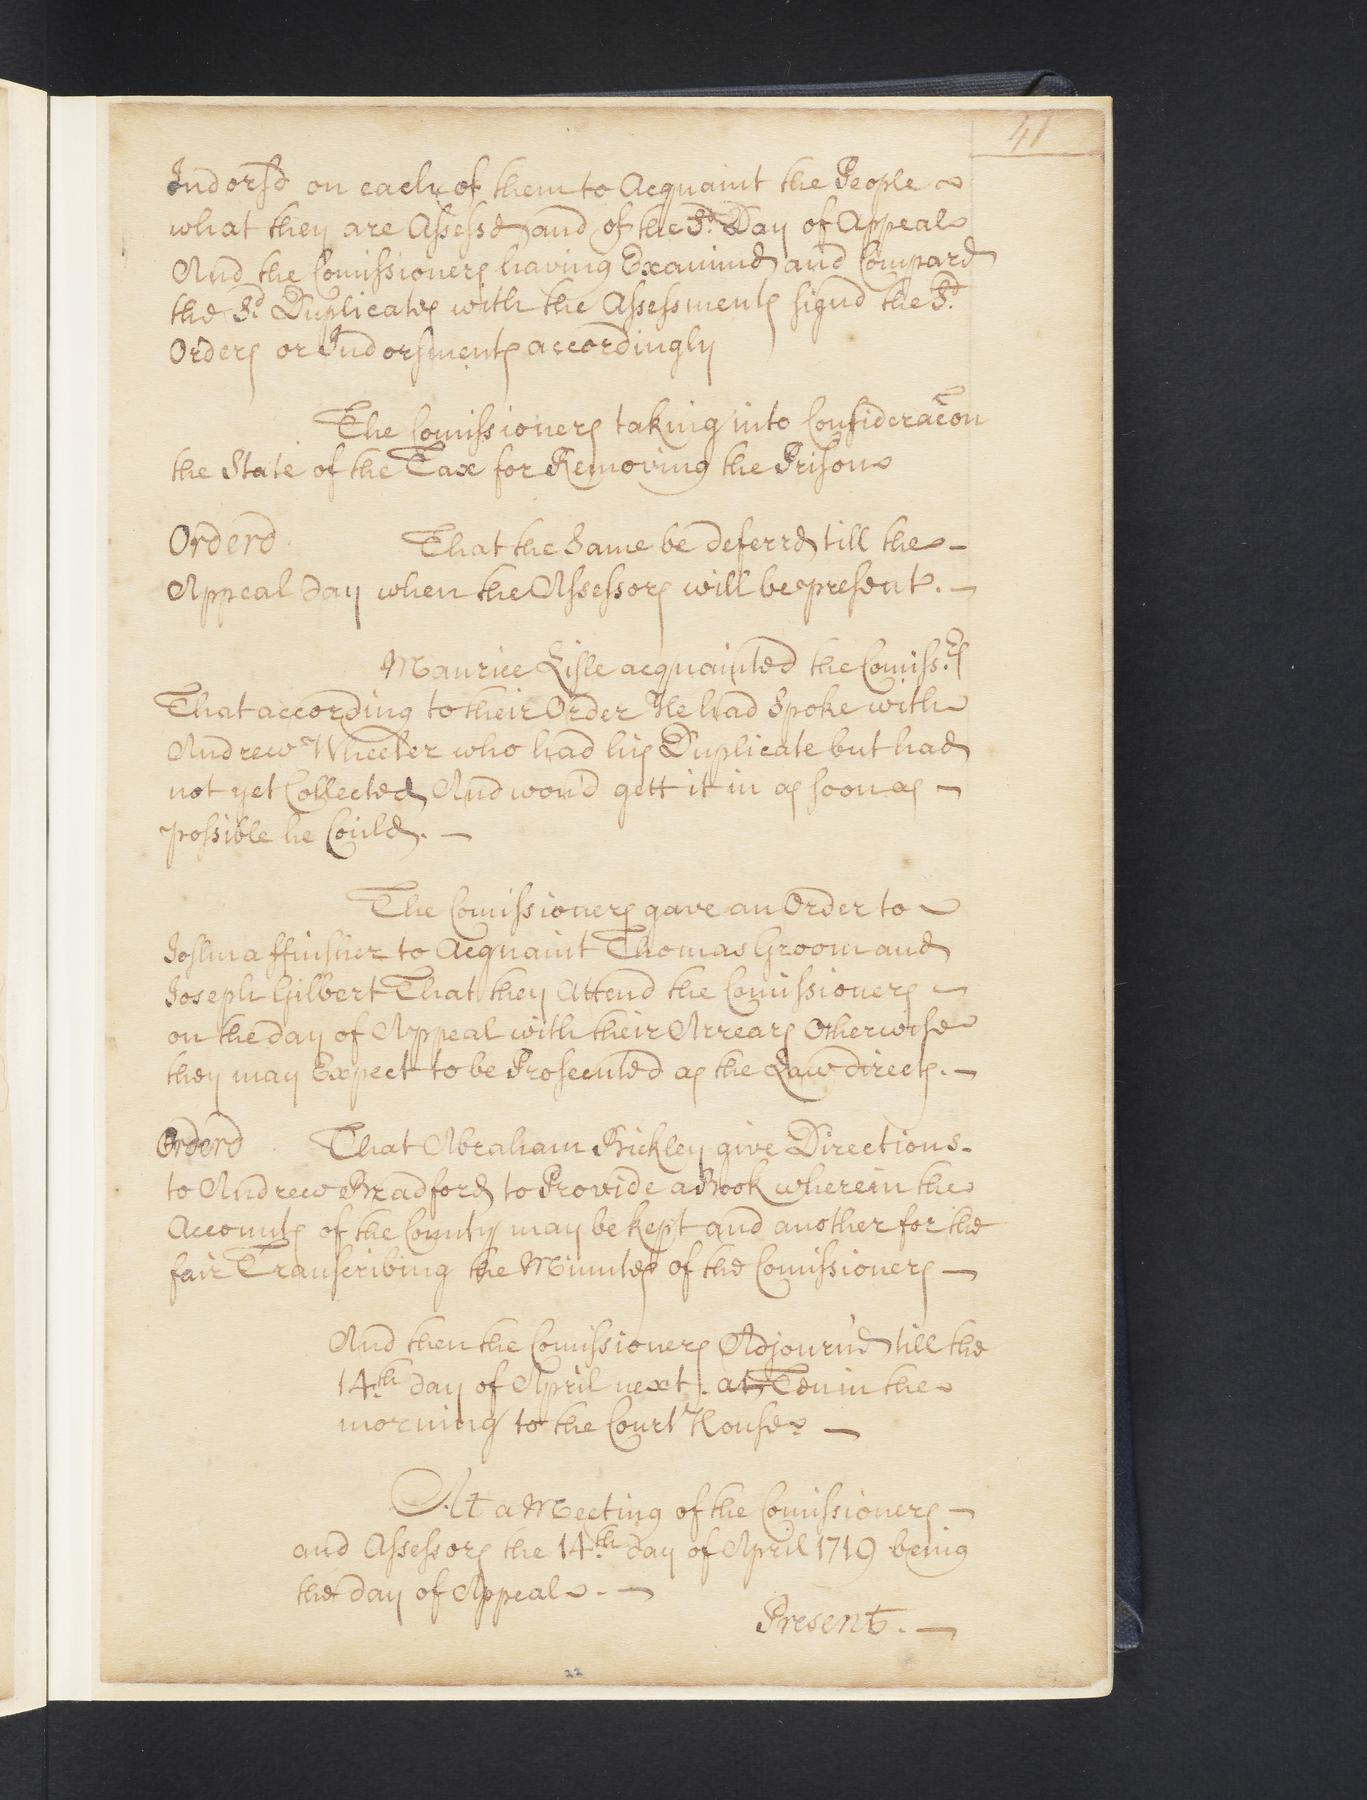 41
Indorsd on each of them to Acquaint the People
what they are Assessd and of the Sd. Day of Appeal
And the Comissioners having Examind and Compard
the Sd Duplicates with the Assessments signd the Sd.
Orders or Indorsments accordingly
The Comissioners taking into Consideracon
the State of the Tax for Removing the Prison
Orderd That the Same be deferrd till the -
Appeal Day when the Assessors will be present. -
Maurice Lisle acquainted the Comiss.rs
That according to their Order He had Spoke with
Andrew Wheeler who had his Duplicate but had
not yet Collected And wou'd gett it in as soon as -
possible he Could. -
The Comissioners gave an Order to
Joshua ffinsher to Acquaint Thomas Groom and
Joseph Gilbert That they Attend the Comissioners -
on the day of Appeal with their Arrears Otherwise
they may Expect to be Prosecuted as the Law directs. -
Orderd That Abraham Bickley give Directions -
to Andrew Bradford to Provide a Book wherein the
Accounts of the County may be kept and another for the
fair Transcribing the Minutes of the Comissioners -
And then the Comissioners Adjourn'd till the
14.th day of April next . at Ten in the
morning to the Court House. -
At a Meeting of the Comissioners -
and Assessors the 14.th day of April 1719 being
the day of Appeal . -
Present . -
22